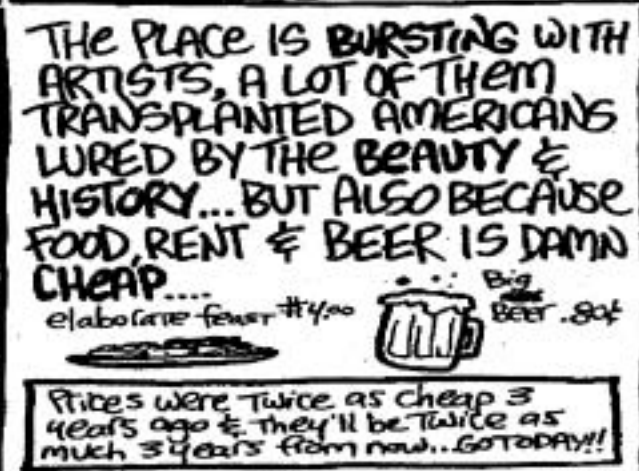 THE PLACE IS BURSTING WITH
ARTISTS, A LOT OF THEM
TRANSPLANTED AMERICANS
LURED BY THE BEAUTY &
HISTORY... BUT ALSO BECAUSE
FOOD, RENT & BEER IS DAMN
CHEAP....
elaborate feast $4.00
Big
BEER .80¢
Prices were Twice as cheap 3
years ago & they'll be Twice as
much 3 years from now...GO TODAY!!